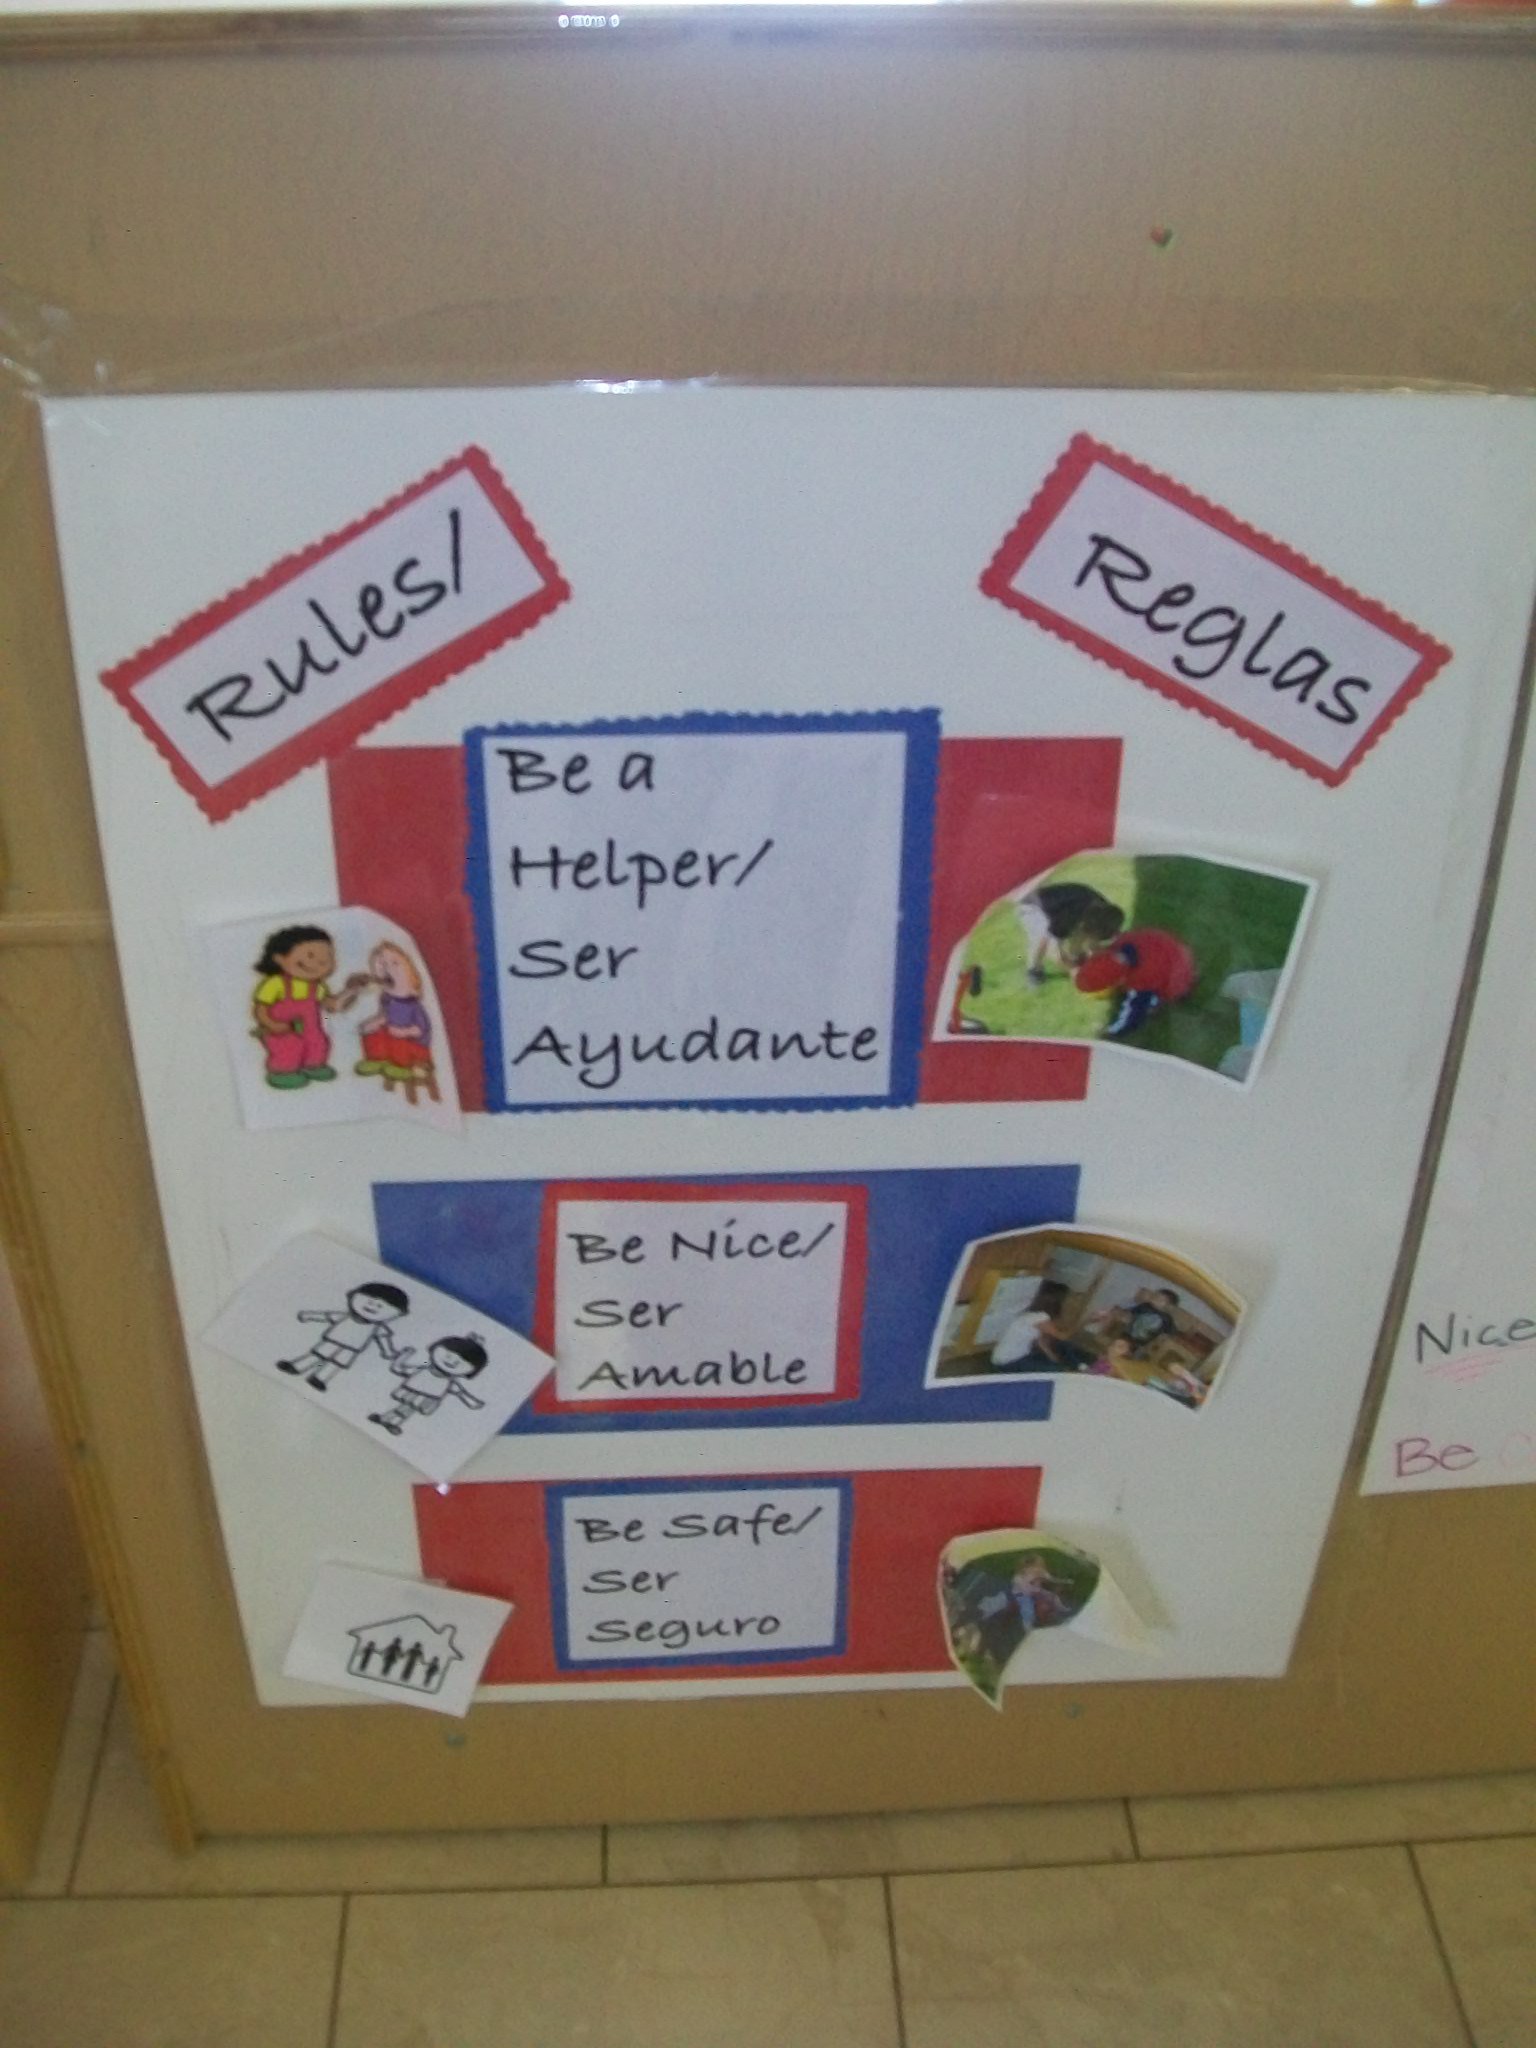 Rules/
Reglas
Be a
Helper/
Ser
Ayudante
Be Nice/
Ser
Amable
Be Safe/
Ser
Seguro
Nice
Be